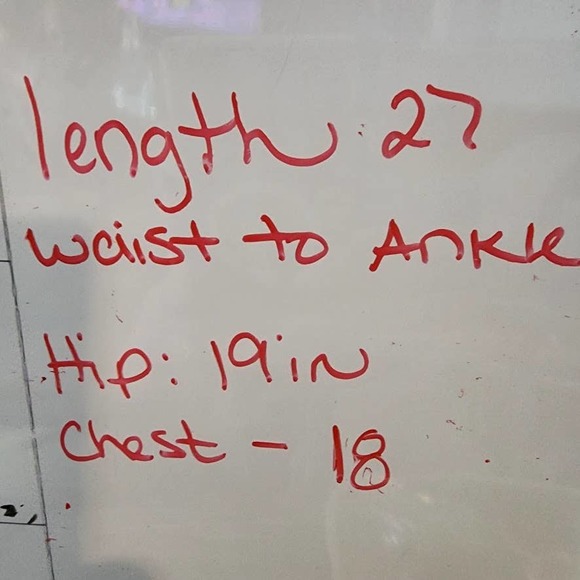 length: 27
waist to Ankle
Hip: 19in
Chest - 18